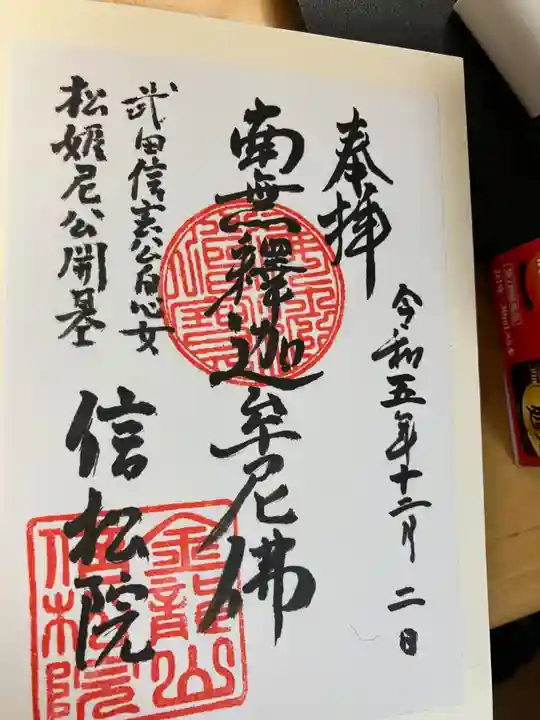 奉拝
令和五年十二月二日
南無釋迦牟尼佛
武田信玄公息女
松姫尼公開基
信松院
金龍山
信松院